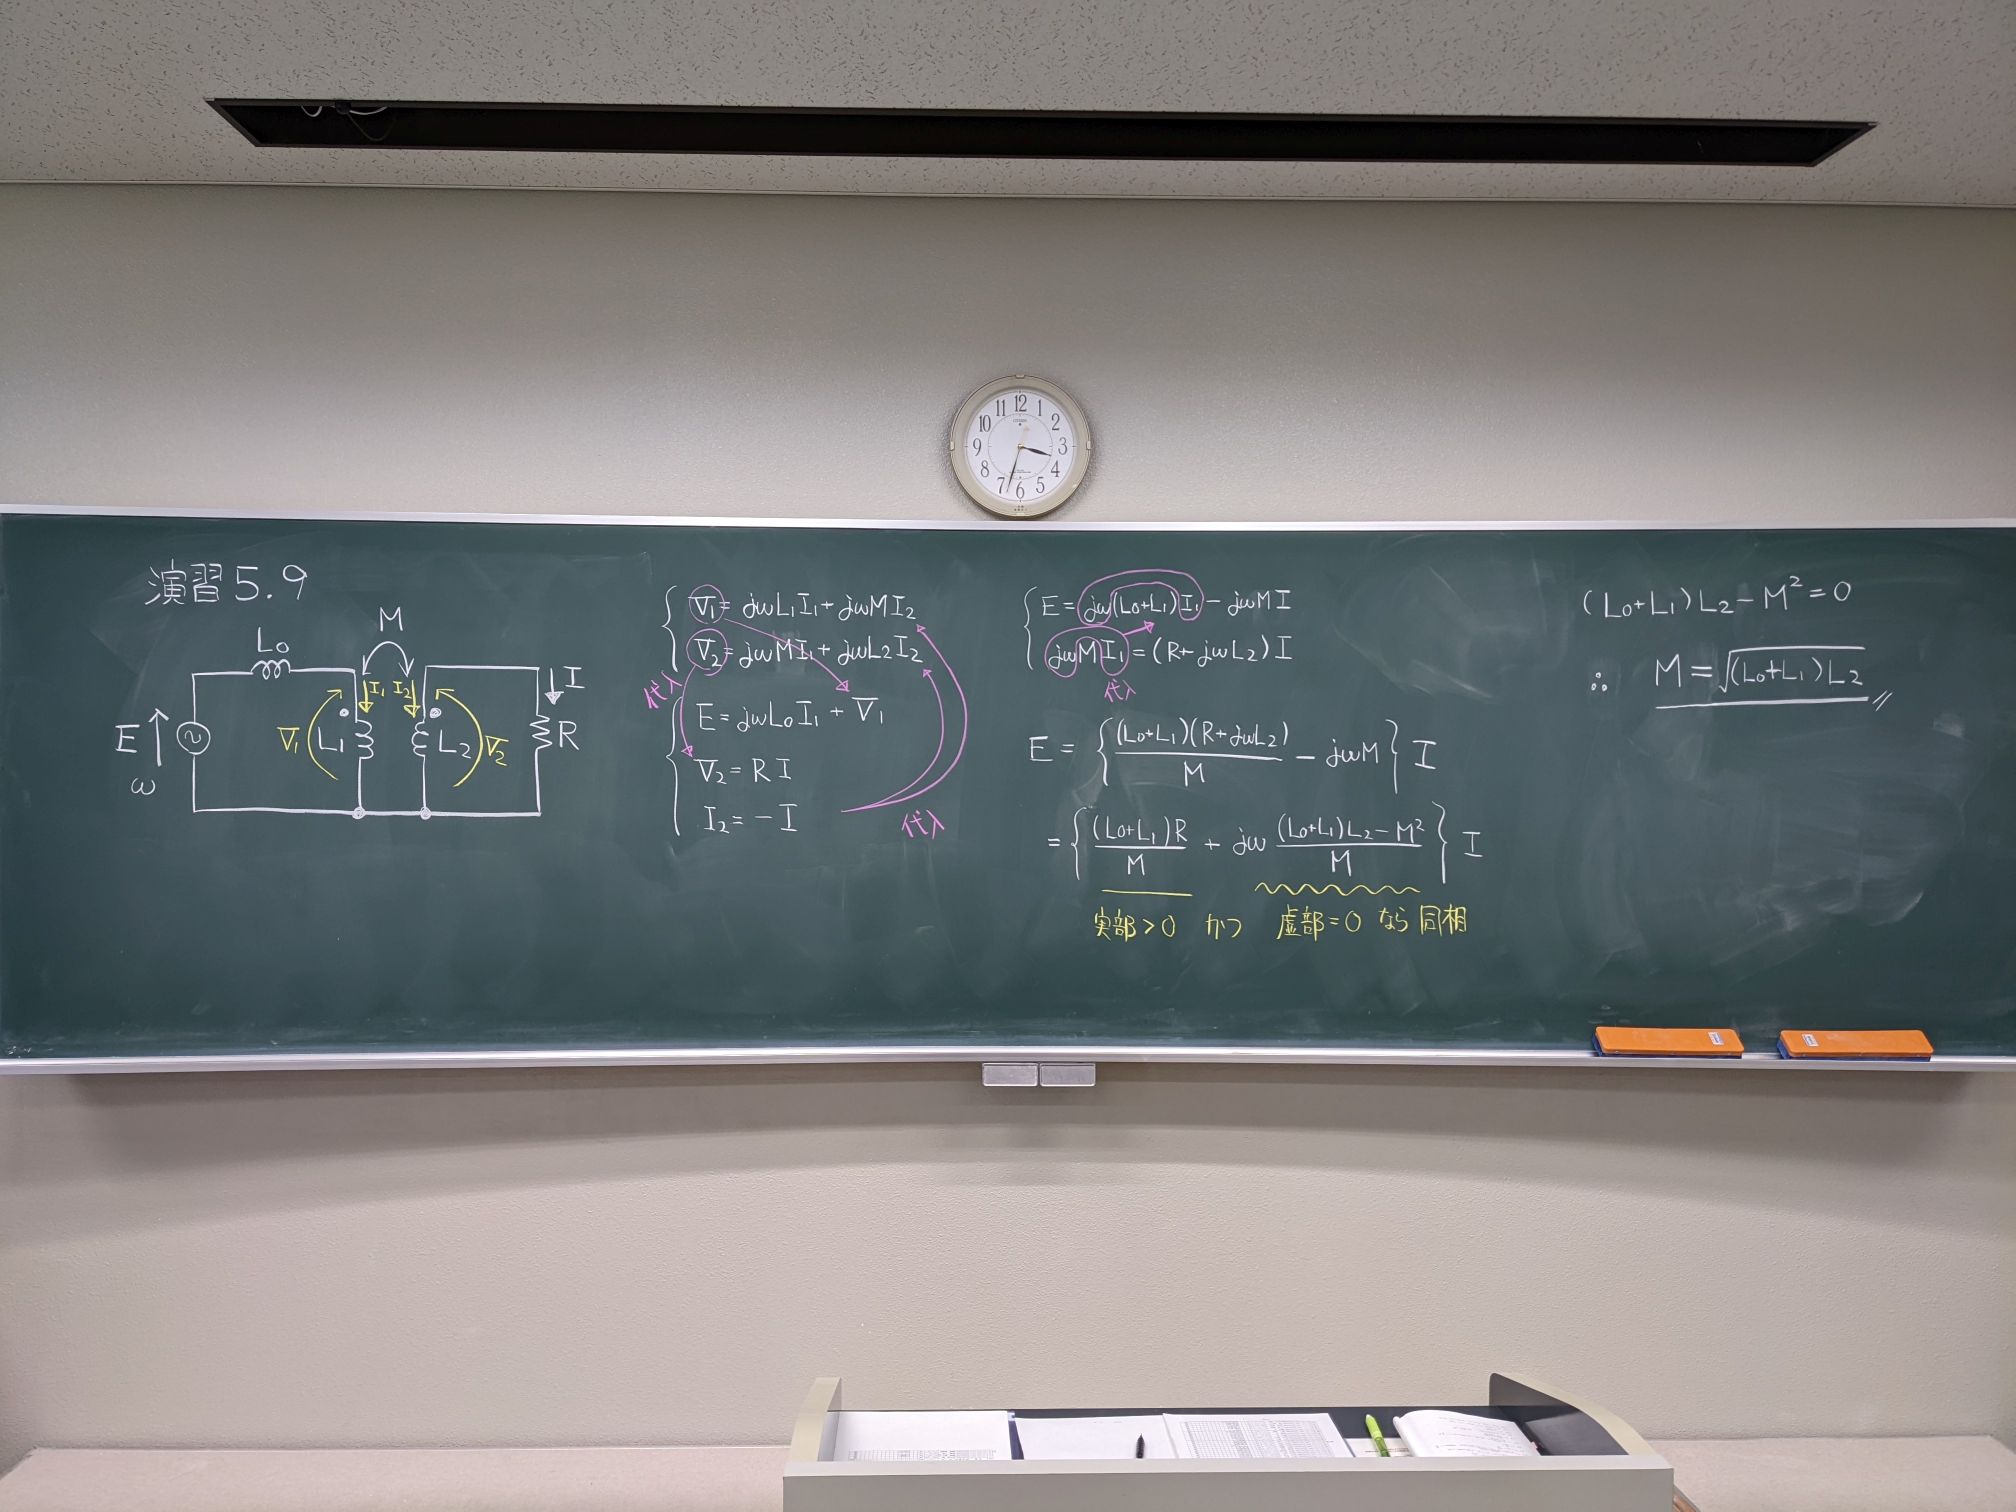 12
1
2
3
4
5
6
7
8
9
10
11
CITIZEN
演習5.9
M
L₀
I₁ I₂
I
E
ω
V₁
L₁
L₂
V₂
R
V₁=jωL₁I₁+jωMI₂
V₂=jωMI₁+jωL₂I₂
代入
E=jωL₀I₁+V₁
V₂=RI
I₂=-I
代入
E=jω(L₀+L₁)I₁-jωMI
jωMI₁=(R+jωL₂)I
代入
E={(L₀+L₁)(R+jωL₂)/M-jωM}I
={(L₀+L₁)R/M+jω(L₀+L₁)L₂-M²/M}I
実部>0 かつ 虚部=0 なら 同相
(L₀+L₁)L₂-M²=0
∴ M=√(L₀+L₁)L₂